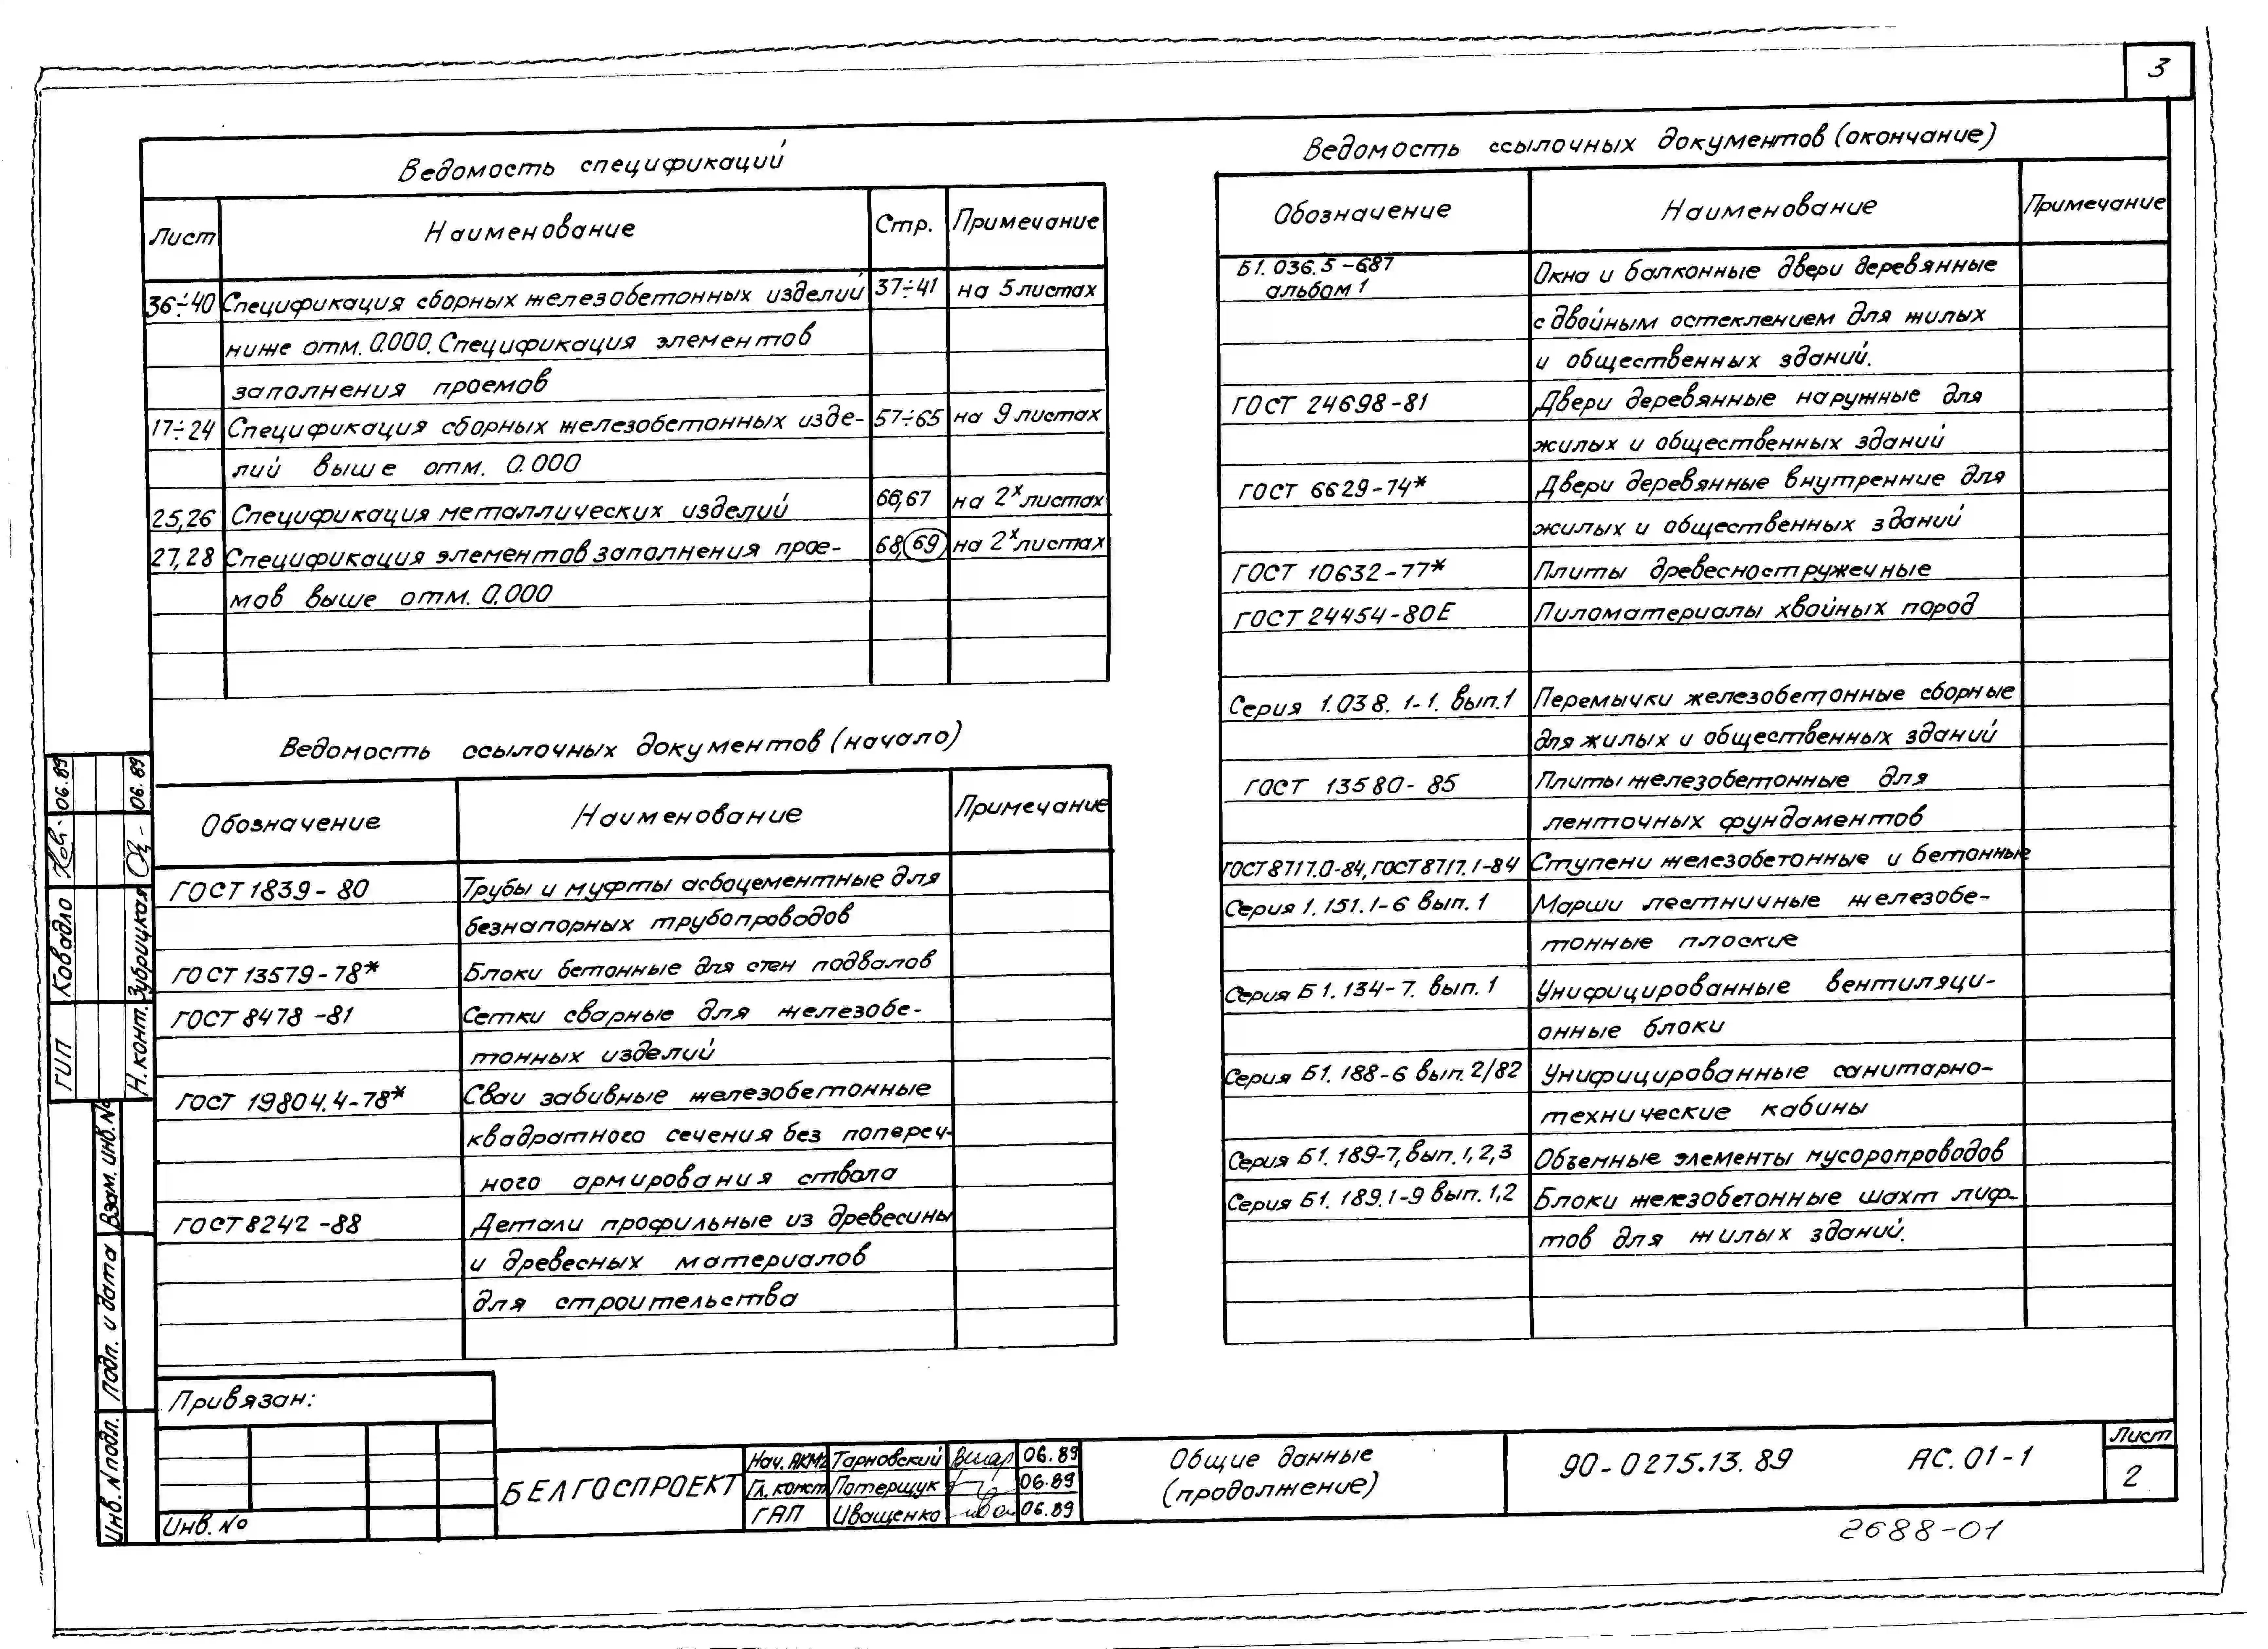 3
Ведомость спецификаций
Лист Наименование Стр. Примечание
36÷40 Спецификация сборных железобетонных изделий 37÷41 на 5 листах
ниже отм. 0.000. Спецификация элементов
заполнения проемов
17÷24 Спецификация сборных железобетонных изде- 57÷65 на 9 листах
лий выше отм. 0.000
25,26 Спецификация металлических изделий 66,67 на 2х листах
27,28 Спецификация элементов заполнения прое- 68,69 на 2х листах
мов выше отм. 0.000
Ведомость ссылочных документов (начало)
Обозначение Наименование Примечание
ГОСТ 1839-80 Трубы и муфты асбоцементные для
безнапорных трубопроводов
ГОСТ 13579-78* Блоки бетонные для стен подвалов
ГОСТ 8478-81 Сетки сварные для железобе-
тонных изделий
ГОСТ 19804.4-78* Сваи забивные железобетонные
квадратного сечения без попереч-
ного армирования ствола
ГОСТ 8242-88 Детали профильные из древесины
и древесных материалов
для строительства
Ведомость ссылочных документов (окончание)
Обозначение Наименование Примечание
Б1.036.5-687 Окна и балконные двери деревянные
альбом 1
с двойным остеклением для жилых
и общественных зданий.
ГОСТ 24698-81 Двери деревянные наружные для
жилых и общественных зданий
ГОСТ 6629-74* Двери деревянные внутренние для
жилых и общественных зданий
ГОСТ 10632-77* Плиты древесностружечные
ГОСТ 24454-80Е Пиломатериалы хвойных пород
Серия 1.038.1-1. вып.1 Перемычки железобетонные сборные
для жилых и общественных зданий
ГОСТ 13580-85 Плиты железобетонные для
ленточных фундаментов
ГОСТ 8717.0-84, ГОСТ 8717.1-84 Ступени железобетонные и бетонные
Серия 1.151.1-6 вып.1 Марши лестничные железобе-
тонные плоские
Серия Б1.134-7. вып.1 Унифицированные вентиляци-
онные блоки
Серия Б1.188-6 вып.2/82 Унифицированные санитарно-
технические кабины
Серия Б1.189-7, вып.1,2,3 Объемные элементы мусоропроводов
Серия Б1.189.1-9 вып.1,2 Блоки железобетонные шахт лиф-
тов для жилых зданий.
ГИП Ковадло 06.89
Н.конт. Зубрицкая 06.89
Взам. инв. №
Подп. и дата
Инв. № подл.
Привязан:
Инв. №
БЕЛГОСПРОЕКТ
Нач. АКМ2 Тарновский 06.89
Гл. конст Потерщук 06.89
ГАП Иващенко 06.89
Общие данные
(продолжение)
90-0275.13.89 АС.01-1
Лист
2
2688-01